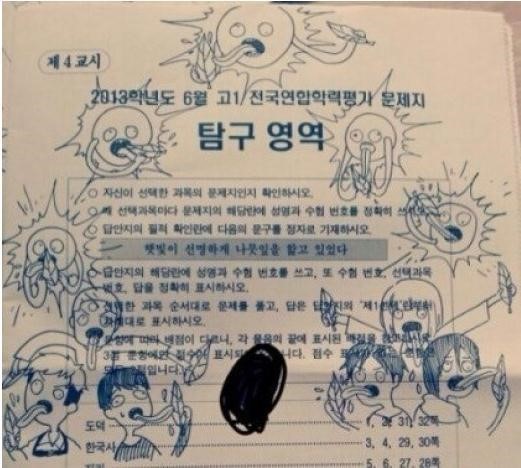 제 4 교시
2013학년도 6월 고1 전국연합학력평가 문제지
탐구 영역
○ 자신이 선택한 과목의 문제지인지 확인하시오.
선택과목마다 문제지의 해당란에 성명과 수험 번호를 정확히
○ 답안지의 필적 확인란에 다음의 문구를 정자로 기재하시오.
햇빛이 선명하게 나뭇잎을 핥고 있었다
○ 답안지의 해당란에 성명과 수험 번호를 쓰고, 또 수험 번호, 선택과목
번호, 답을 정확히 표시하시오.
선택한 과목 순서대로 문제를 풀고, 답은 답안지의 '제1선택'란부터
차례대로 표시하시오.
문항에 따라 배점이 다르니, 각 물음의 끝에 표시된 배점을
3점 문항에만 점수가 점수
도덕 1, 2, 31, 32쪽
한국사 3, 4, 29, 30쪽
5, 6, 27, 28쪽